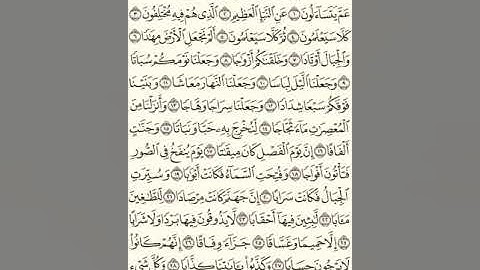 عَمَّ يَتَسَآءَلُونَ ١ عَنِ ٱلنَّبَإِ ٱلْعَظِيمِ ٢ ٱلَّذِى هُمْ فِيهِ مُخْتَلِفُونَ ٣
كَلَّا سَيَعْلَمُونَ ٤ ثُمَّ كَلَّا سَيَعْلَمُونَ ٥ أَلَمْ نَجْعَلِ ٱلْأَرْضَ مِهَٰدًا ٦
وَٱلْجِبَالَ أَوْتَادًا ٧ وَخَلَقْنَٰكُمْ أَزْوَٰجًا ٨ وَجَعَلْنَا نَوْمَكُمْ سُبَاتًا
٩ وَجَعَلْنَا ٱلَّيْلَ لِبَاسًا ١٠ وَجَعَلْنَا ٱلنَّهَارَ مَعَاشًا ١١ وَبَنَيْنَا
فَوْقَكُمْ سَبْعًا شِدَادًا ١٢ وَجَعَلْنَا سِرَاجًا وَهَّاجًا ١٣ وَأَنزَلْنَا مِنَ
ٱلْمُعْصِرَٰتِ مَآءً ثَجَّاجًا ١٤ لِّنُخْرِجَ بِهِۦ حَبًّا وَنَبَاتًا ١٥ وَجَنَّٰتٍ
أَلْفَافًا ١٦ إِنَّ يَوْمَ ٱلْفَصْلِ كَانَ مِيقَٰتًا ١٧ يَوْمَ يُنفَخُ فِى ٱلصُّورِ
فَتَأْتُونَ أَفْوَاجًا ١٨ وَفُتِحَتِ ٱلسَّمَآءُ فَكَانَتْ أَبْوَٰبًا ١٩ وَسُيِّرَتِ
ٱلْجِبَالُ فَكَانَتْ سَرَابًا ٢٠ إِنَّ جَهَنَّمَ كَانَتْ مِرْصَادًا ٢١ لِّلطَّٰغِينَ
مَـَٔابًا ٢٢ لَّٰبِثِينَ فِيهَآ أَحْقَابًا ٢٣ لَّا يَذُوقُونَ فِيهَا بَرْدًا وَلَا شَرَابًا
٢٤ إِلَّا حَمِيمًا وَغَسَّاقًا ٢٥ جَزَآءً وِفَاقًا ٢٦ إِنَّهُمْ كَانُوا۟
لَا يَرْجُونَ حِسَابًا ٢٧ وَكَذَّبُوا۟ بِـَٔايَٰتِنَا كِذَّابًا ٢٨ وَكُلَّ شَىْءٍ